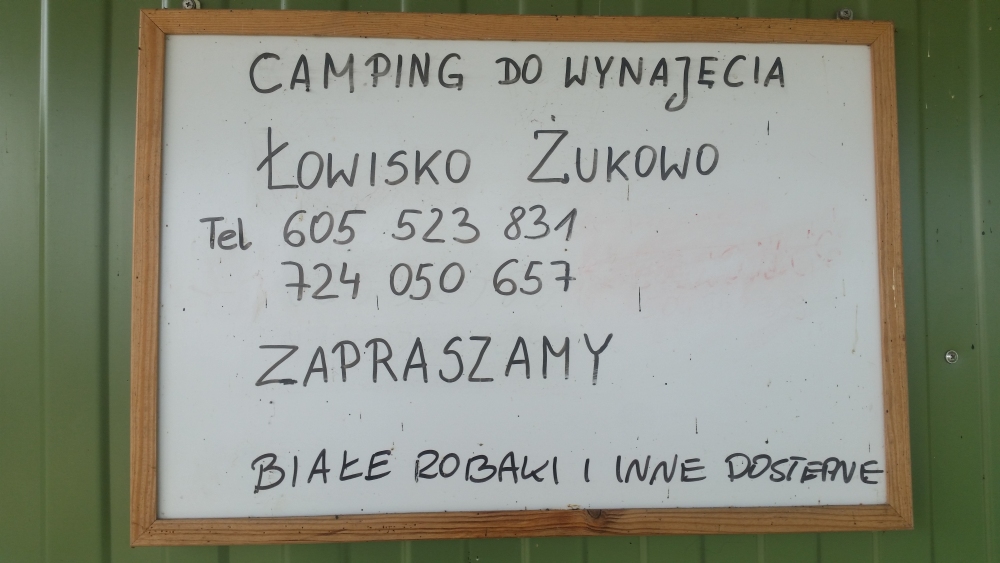 CAMPING DO WYNAJĘCIA
ŁOWISKO ŻUKOWO
Tel 605 523 831
724 050 657
ZAPRASZAMY
BIAŁE ROBAKI I INNE DOSTEPNE